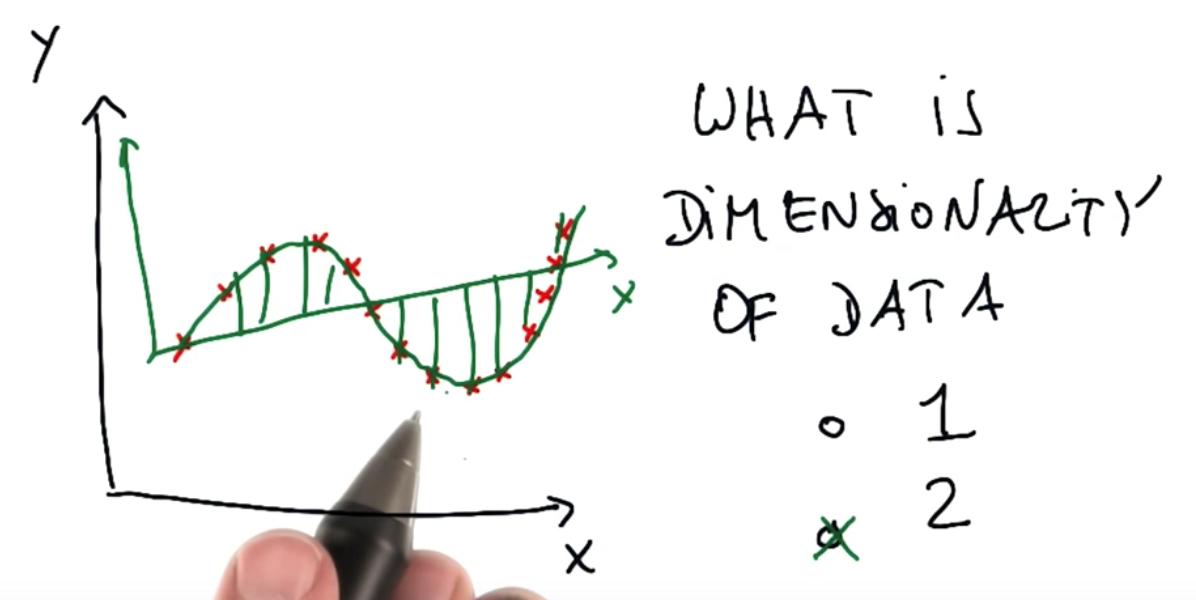 Y
X
X
WHAT iS
DiMENSiONALiTY
OF DATA
1
2